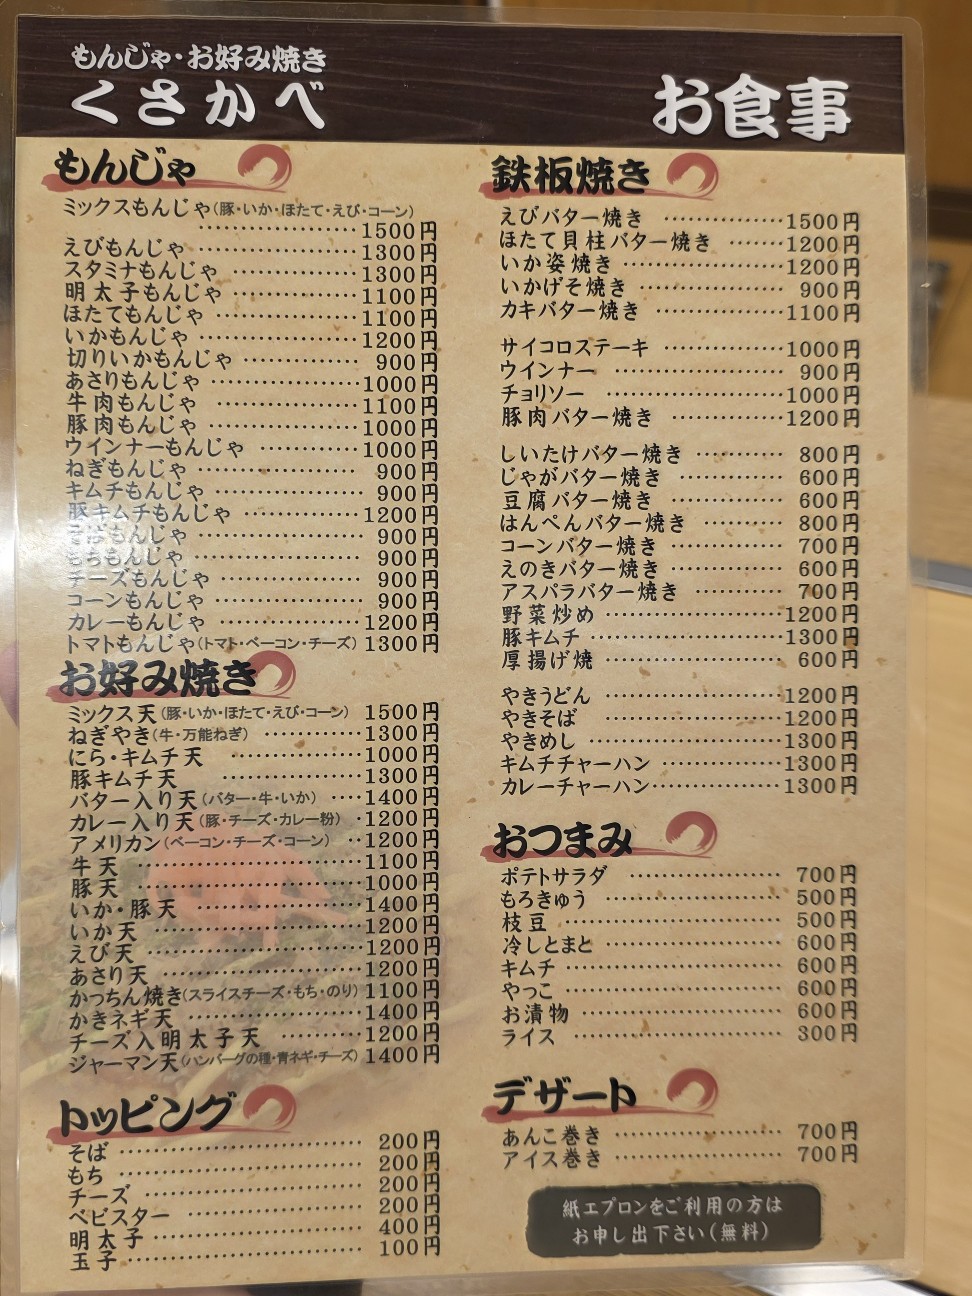 もんじゃ・お好み焼き
くさかべ
お食事
もんじゃ
ミックスもんじゃ(豚・いか・ほたて・えび・コーン)
‥‥‥‥‥‥‥ 1500円
えびもんじゃ ‥‥‥‥‥‥‥ 1300円
スタミナもんじゃ ‥‥‥‥‥‥ 1300円
明太子もんじゃ ‥‥‥‥‥‥ 1100円
ほたてもんじゃ ‥‥‥‥‥‥ 1100円
いかもんじゃ ‥‥‥‥‥‥‥ 1200円
切りいかもんじゃ ‥‥‥‥‥ 900円
あさりもんじゃ ‥‥‥‥‥‥ 1000円
牛肉もんじゃ ‥‥‥‥‥‥ 1100円
豚肉もんじゃ ‥‥‥‥‥‥ 1000円
ウインナーもんじゃ ‥‥‥‥ 1000円
ねぎもんじゃ ‥‥‥‥‥‥‥ 900円
キムチもんじゃ ‥‥‥‥‥‥ 900円
豚キムチもんじゃ ‥‥‥‥‥ 1200円
そばもんじゃ ‥‥‥‥‥‥‥ 900円
もちもんじゃ ‥‥‥‥‥‥‥ 900円
チーズもんじゃ ‥‥‥‥‥‥ 900円
コーンもんじゃ ‥‥‥‥‥‥ 900円
カレーもんじゃ ‥‥‥‥‥‥ 1200円
トマトもんじゃ(トマト・ベーコン・チーズ) 1300円
お好み焼き
ミックス天(豚・いか・ほたて・えび・コーン) 1500円
ねぎやき(牛・万能ねぎ) ‥‥‥‥ 1300円
にら・キムチ天 ‥‥‥‥‥‥ 1000円
豚キムチ天 ‥‥‥‥‥‥ 1300円
バター入り天(バター・牛・いか) ‥‥ 1400円
カレー入り天(豚・チーズ・カレー粉) ‥ 1200円
アメリカン(ベーコン・チーズ・コーン) ‥ 1200円
牛天 ‥‥‥‥‥‥‥‥‥ 1100円
豚天 ‥‥‥‥‥‥‥‥‥ 1000円
いか・豚天 ‥‥‥‥‥‥‥ 1400円
いか天 ‥‥‥‥‥‥‥‥ 1200円
えび天 ‥‥‥‥‥‥‥‥ 1200円
あさり天 ‥‥‥‥‥‥‥‥ 1200円
かっちん焼き(スライスチーズ・もち・のり) 1100円
かきネギ天 ‥‥‥‥‥‥‥ 1400円
チーズ入明太子天 ‥‥‥‥ 1200円
ジャーマン天(ハンバーグの種・青ネギ・チーズ) 1400円
トッピング
そば ‥‥‥‥‥‥‥‥‥ 200円
もち ‥‥‥‥‥‥‥‥‥ 200円
チーズ ‥‥‥‥‥‥‥‥ 200円
ベビスター ‥‥‥‥‥‥‥ 200円
明太子 ‥‥‥‥‥‥‥‥ 400円
玉子 ‥‥‥‥‥‥‥‥‥ 100円
鉄板焼き
えびバター焼き ‥‥‥‥‥ 1500円
ほたて貝柱バター焼き ‥‥‥ 1200円
いか姿焼き ‥‥‥‥‥‥‥ 1200円
いかげそ焼き ‥‥‥‥‥‥ 900円
カキバター焼き ‥‥‥‥‥ 1100円
サイコロステーキ ‥‥‥‥‥ 1000円
ウインナー ‥‥‥‥‥‥‥ 900円
チョリソー ‥‥‥‥‥‥‥ 1000円
豚肉バター焼き ‥‥‥‥‥ 1200円
しいたけバター焼き ‥‥‥‥ 800円
じゃがバター焼き ‥‥‥‥‥ 600円
豆腐バター焼き ‥‥‥‥‥ 600円
はんぺんバター焼き ‥‥‥‥ 800円
コーンバター焼き ‥‥‥‥‥ 700円
えのきバター焼き ‥‥‥‥‥ 600円
アスパラバター焼き ‥‥‥‥ 700円
野菜炒め ‥‥‥‥‥‥‥‥ 1200円
豚キムチ ‥‥‥‥‥‥‥‥ 1300円
厚揚げ焼 ‥‥‥‥‥‥‥‥ 600円
やきうどん ‥‥‥‥‥‥‥ 1200円
やきそば ‥‥‥‥‥‥‥‥ 1200円
やきめし ‥‥‥‥‥‥‥‥ 1300円
キムチチャーハン ‥‥‥‥‥ 1300円
カレーチャーハン ‥‥‥‥‥ 1300円
おつまみ
ポテトサラダ ‥‥‥‥‥‥ 700円
もろきゅう ‥‥‥‥‥‥‥ 500円
枝豆 ‥‥‥‥‥‥‥‥‥ 500円
冷しとまと ‥‥‥‥‥‥‥ 600円
キムチ ‥‥‥‥‥‥‥‥‥ 600円
やっこ ‥‥‥‥‥‥‥‥‥ 600円
お漬物 ‥‥‥‥‥‥‥‥ 600円
ライス ‥‥‥‥‥‥‥‥‥ 300円
デザート
あんこ巻き ‥‥‥‥‥‥‥ 700円
アイス巻き ‥‥‥‥‥‥‥ 700円
紙エプロンをご利用の方は
お申し出下さい(無料)